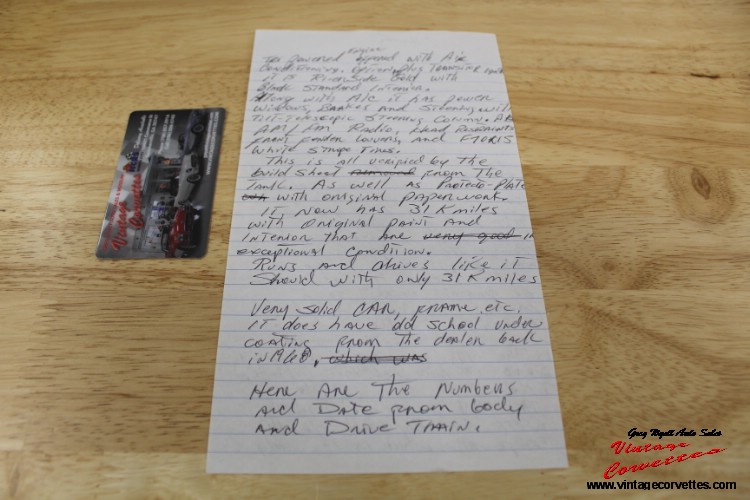 Engine
Powered with Air
Conditioning.
it is Riverside Gold with
Black Standard Interior.
Along with A/C it has power
Windows, Brakes and Steering with
Tilt-Telescopic Steering Column.
AM/FM Radio, Head Restraints
front fender louvers, and F70x15
White Stripe Tires.
This is all verified by the
build Sheet from the
Tank. As well as Protecto-Plate
with original paperwork.
IT Now has 31K miles
with original paint and
Interior that are very good in
exceptional condition.
Runs and drives like it
Should with only 31K miles
Very solid CAR, frame, etc.
IT does have old school under
coating from the dealer back
in 1968, which was
Here Are The Numbers
And Date from body
And Drive Train.
Vintage
Corvettes
Greg Wyatt Auto Sales
Vintage
Corvettes
www.vintagecorvettes.com